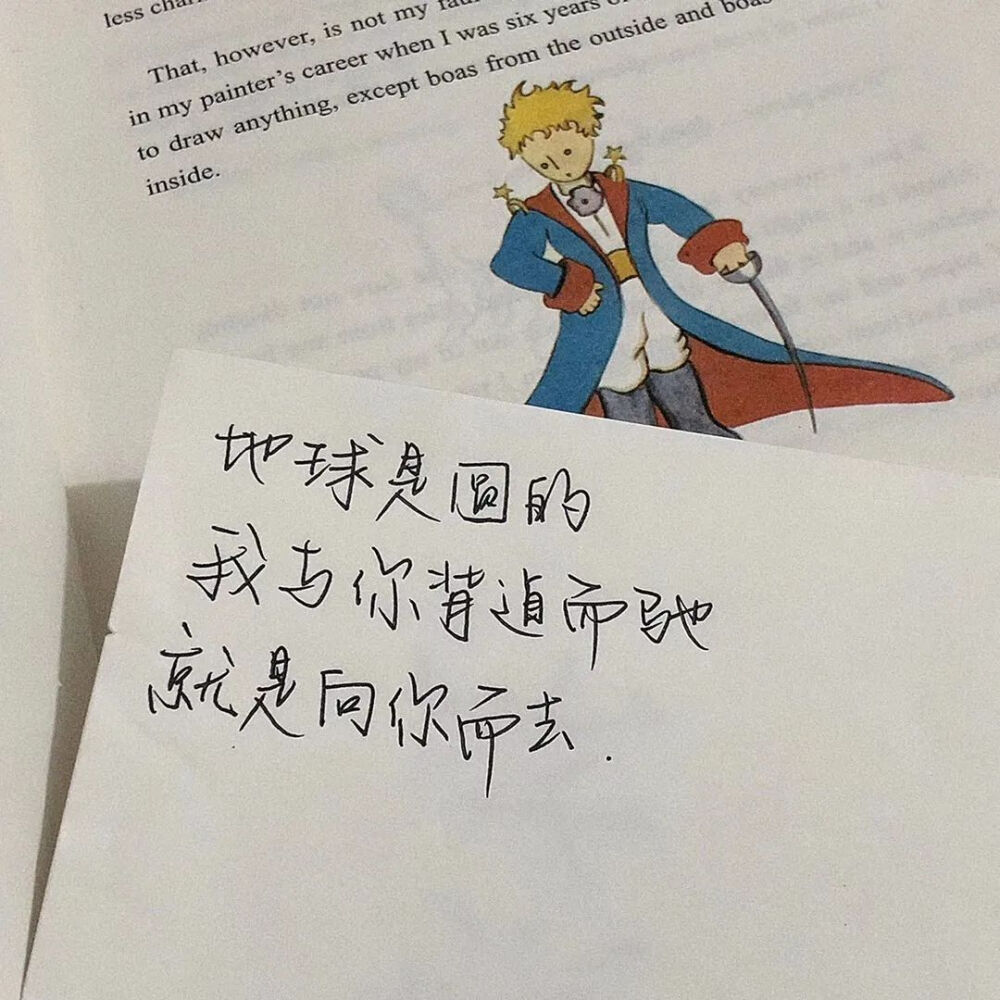 less
That, however, is not my
in my painter's career when I was six years
to draw anything, except boas from the outside and
inside.
地球是圆的
我与你背道而驰
就是向你而去.